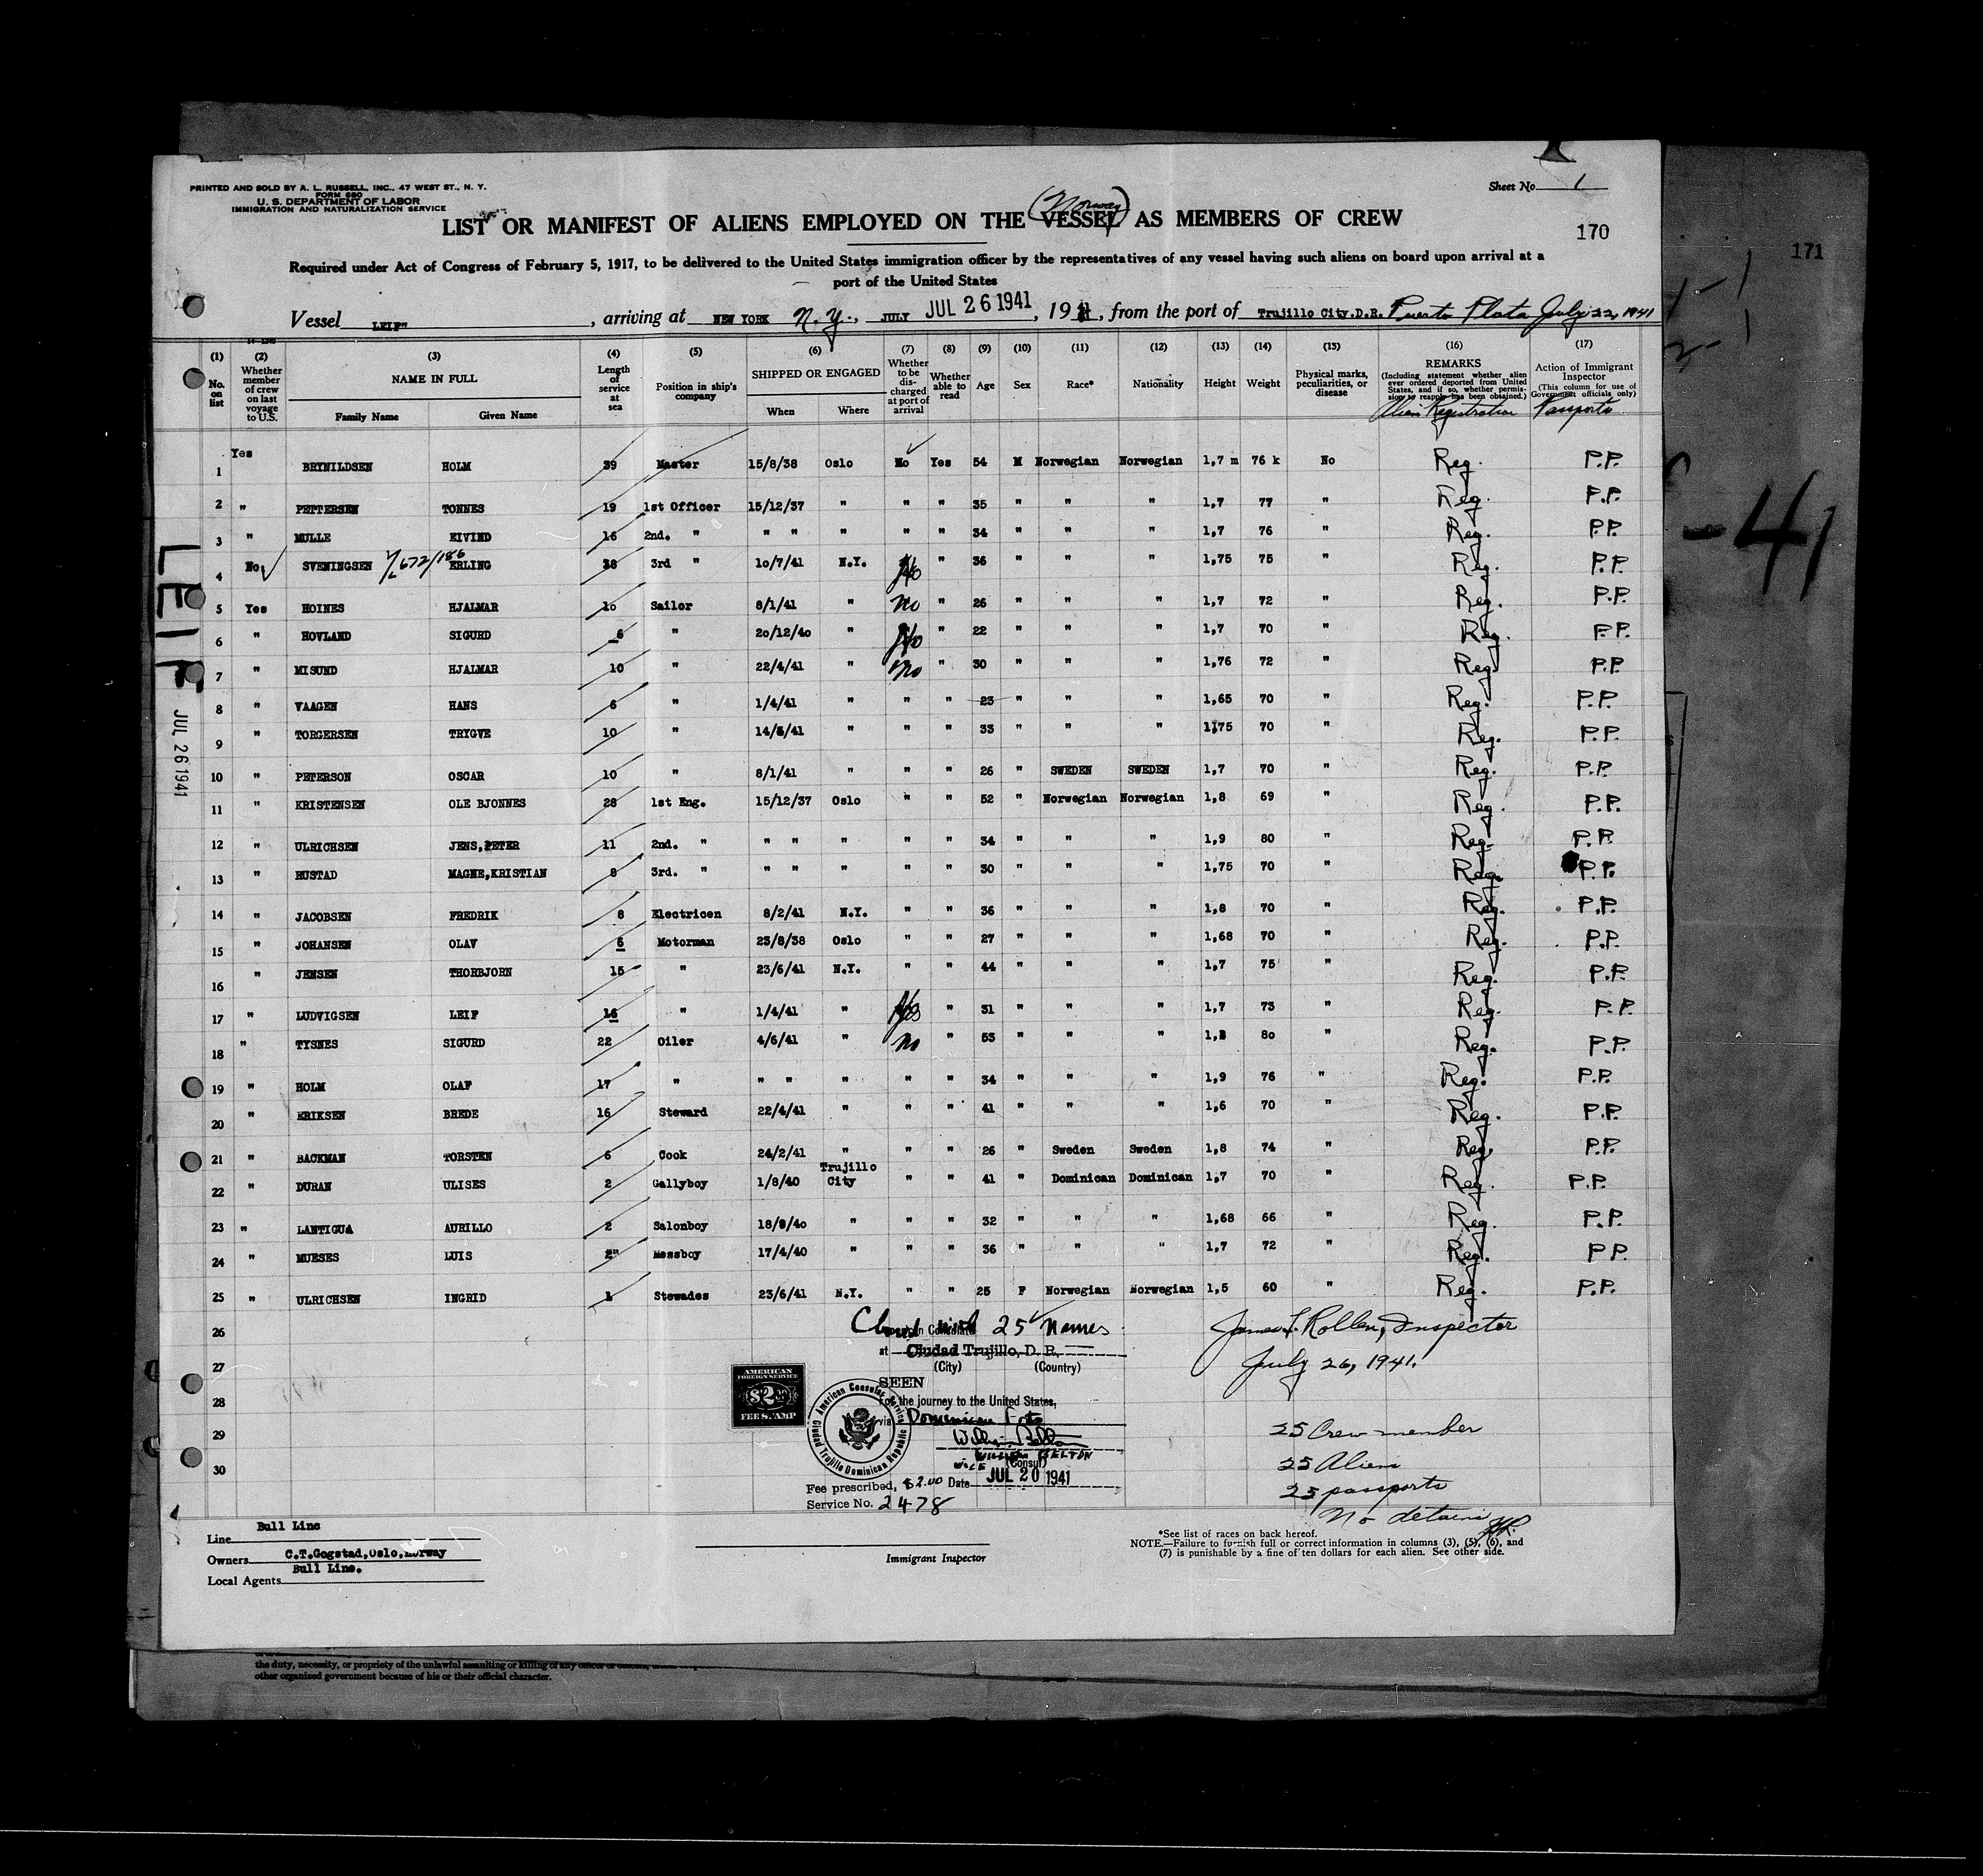 PRINTED AND SOLD BY A. L. RUSSELL, INC., 47 WEST ST., N. Y.
FORM 680
U. S. DEPARTMENT OF LABOR
IMMIGRATION AND NATURALIZATION SERVICE
Sheet No. 1
(Norway)
LIST OR MANIFEST OF ALIENS EMPLOYED ON THE VESSEL AS MEMBERS OF CREW
170
171
Required under Act of Congress of February 5, 1917, to be delivered to the United States immigration officer by the representatives of any vessel having such aliens on board upon arrival at a
port of the United States
Vessel LEIF", arriving at NEW YORK N.Y., JULY JUL 26 1941, 1941, from the port of Trujillo City.D.R. Puerto Plata July 22, 1941
(1) (2) (3) (4) (5) (6) (7) (8) (9) (10) (11) (12) (13) (14) (15) (16) (17)
No. on list
Whether member of crew on last voyage to U.S.
NAME IN FULL
Family Name Given Name
Length of service at sea
Position in ship's company
SHIPPED OR ENGAGED
When Where
Whether to be discharged at port of arrival
Whether able to read
Age
Sex
Race*
Nationality
Height
Weight
Physical marks, peculiarities, or disease
REMARKS
(Including statement whether alien ever ordered deported from United States, and if so, whether permission to reapply has been obtained.)
Alien Registration
Action of Immigrant Inspector
(This column for use of Government officials only)
Passports
1 Yes BRYNILDSEN HOLM 39 Master 15/8/38 Oslo No Yes 54 M Norwegian Norwegian 1,7 m 76 k No Reg. P.P.
2 " PETTERSEN TONNES 19 1st Officer 15/12/37 " " " 35 " " " 1,7 77 " Reg. P.P.
3 " MULLE EIVIND 16 2nd. " " " " " " 34 " " " 1,7 76 " Reg. P.P.
4 No SVENINGSEN 672/186 ERLING 3rd " 10/7/41 N.Y. No " 36 " " " 1,75 75 " Reg. P.P.
5 Yes HOINES HJALMAR 10 Sailor 8/1/41 " No " 26 " " " 1,7 72 " Reg. P.P.
6 " HOVLAND SIGURD 6 " 20/12/40 " No " 22 " " " 1,7 70 " Reg. P.P.
7 " MISUND HJALMAR 10 " 22/4/41 " No " 30 " " " 1,76 72 " Reg. P.P.
8 " VAAGEN HANS 6 " 1/4/41 " " " 23 " " " 1,65 70 " Reg. P.P.
9 " TORGERSEN TRYGVE 10 " 14/5/41 " " " 33 " " " 1,75 70 " Reg. P.P.
10 " PETERSON OSCAR 10 " 8/1/41 " " " 26 " SWEDEN SWEDEN 1,7 70 " Reg. P.P.
11 " KRISTENSEN OLE BJONNES 28 1st Eng. 15/12/37 Oslo " " 52 " Norwegian Norwegian 1,8 69 " Reg. P.P.
12 " ULRICHSEN JENS,PETER 11 2nd. " " " " " " 34 " " " 1,9 80 " Reg. P.P.
13 " RUSTAD MAGNE,KRISTIAN 8 3rd. " " " " " " 30 " " " 1,75 70 " Reg. P.P.
14 " JACOBSEN FREDRIK 8 Electricen 8/2/41 N.Y. " " 36 " " " 1,8 70 " Reg. P.P.
15 " JOHANSEN OLAV 6 Motorman 23/8/38 Oslo " " 27 " " " 1,68 70 " Reg. P.P.
16 " JENSEN THORBJORN 15 " 23/6/41 N.Y. " " 44 " " " 1,7 75 " Reg. P.P.
17 " LUDVIGSEN LEIF 16 " 1/4/41 " " 31 " " " 1,7 73 " Reg. P.P.
18 " TYSNES SIGURD 22 Oiler 4/6/41 " No " 53 " " " 80 " Reg. P.P.
19 " HOLM OLAF 17 " " " " " " 34 " " " 1,9 76 " Reg. P.P.
20 " ERIKSEN BREDE 16 Steward 22/4/41 " " " 41 " " " 1,6 70 " Reg. P.P.
21 " BACKMAN TORSTEN 6 Cook 24/2/41 " " " 26 " Sweden Sweden 1,8 74 " Reg. P.P.
22 " DURAN ULISES 2 Gallyboy 1/8/40 Trujillo City " " 41 " Dominican Dominican 1,7 70 " Reg. P.P.
23 " LANTIGUA AURILLO 2 Salonboy 18/9/40 " " " 32 " " " 1,68 66 " Reg. P.P.
24 " MUESES LUIS 2" Messboy 17/4/40 " " " 36 " " " 1,7 72 " Reg. P.P.
25 " ULRICHSEN INGRID 1 Stewades 23/6/41 N.Y. " " 25 F Norwegian Norwegian 1,5 60 " Reg. P.P.
26
27
28
29
30
Closed with 25 Names
at Ciudad Trujillo, D. R.
(City) (Country)
SEEN
For the journey to the United States,
via Dominican Ports
William Belton
WILLIAM BELTON
VICE (Consul)
JUL 20 1941
Fee prescribed, $2.00 Date
Service No. 2478
AMERICAN
FOREIGN SERVICE
$2.00
FEE STAMP
American Consular Service
Ciudad Trujillo Dominican Republic
James F. Rollen, Inspector
July 26, 1941.
25 Crew member
25 Aliens
25 passports
No detains
LEIF
JUL 26 1941
-41
Line Bull Line
Owners C.T.Gogstad,Oslo,Norway
Local Agents Bull Line.
Immigrant Inspector
*See list of races on back hereof.
NOTE.—Failure to furnish full or correct information in columns (3), (5), (6), and
(7) is punishable by a fine of ten dollars for each alien. See other side.
the duty, necessity, or propriety of the unlawful assaulting or killing of any officer or officers,
other organized government because of his or their official character.